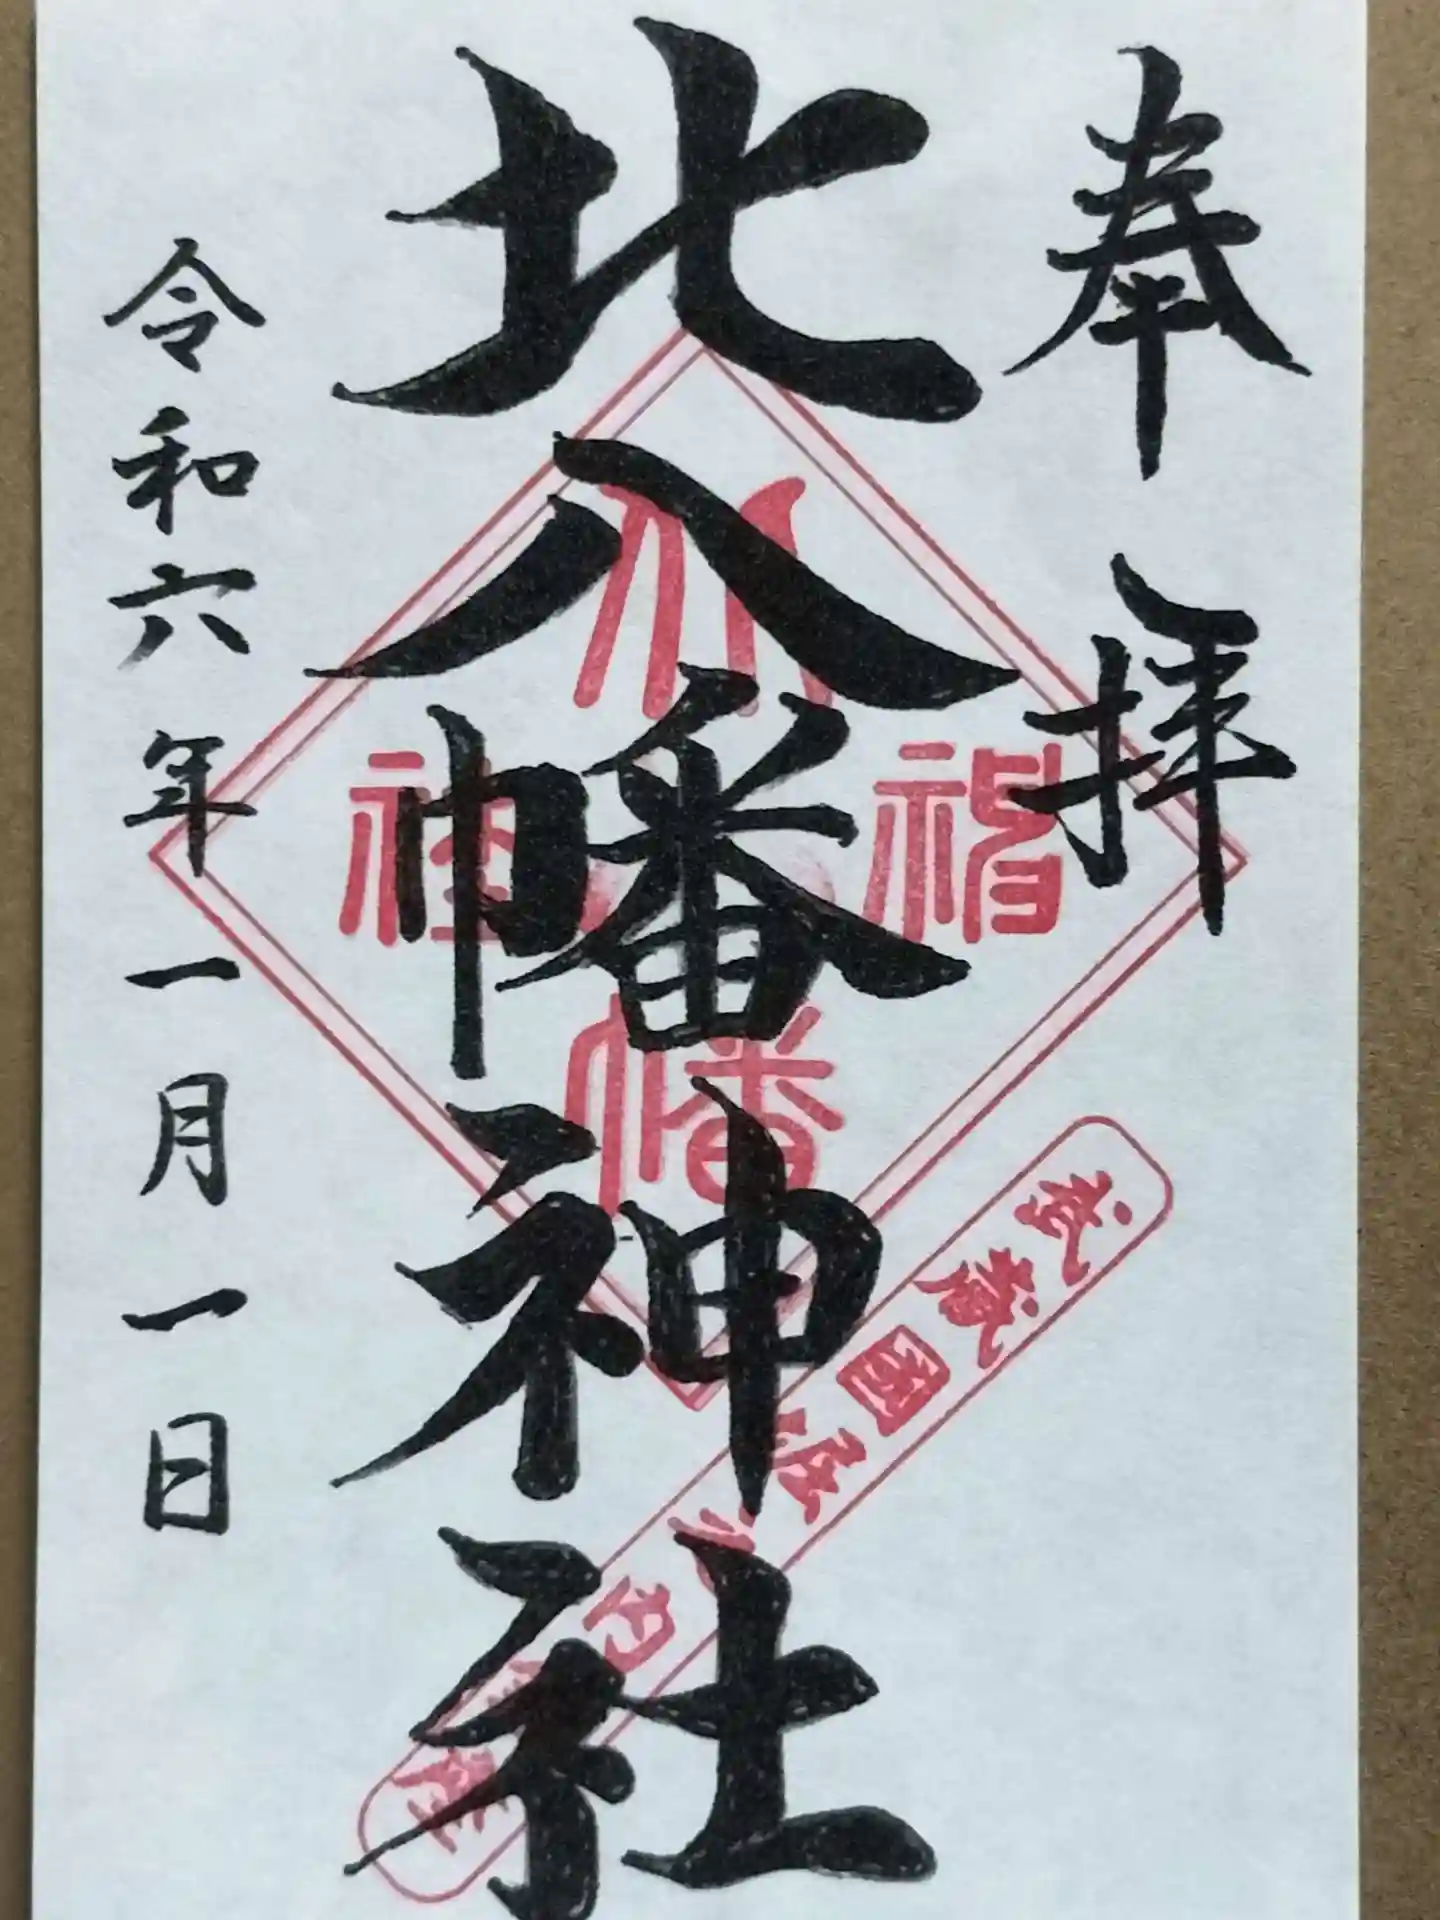 奉拝
北八幡神社
令和六年一月一日
八幡神社
武蔵國
内